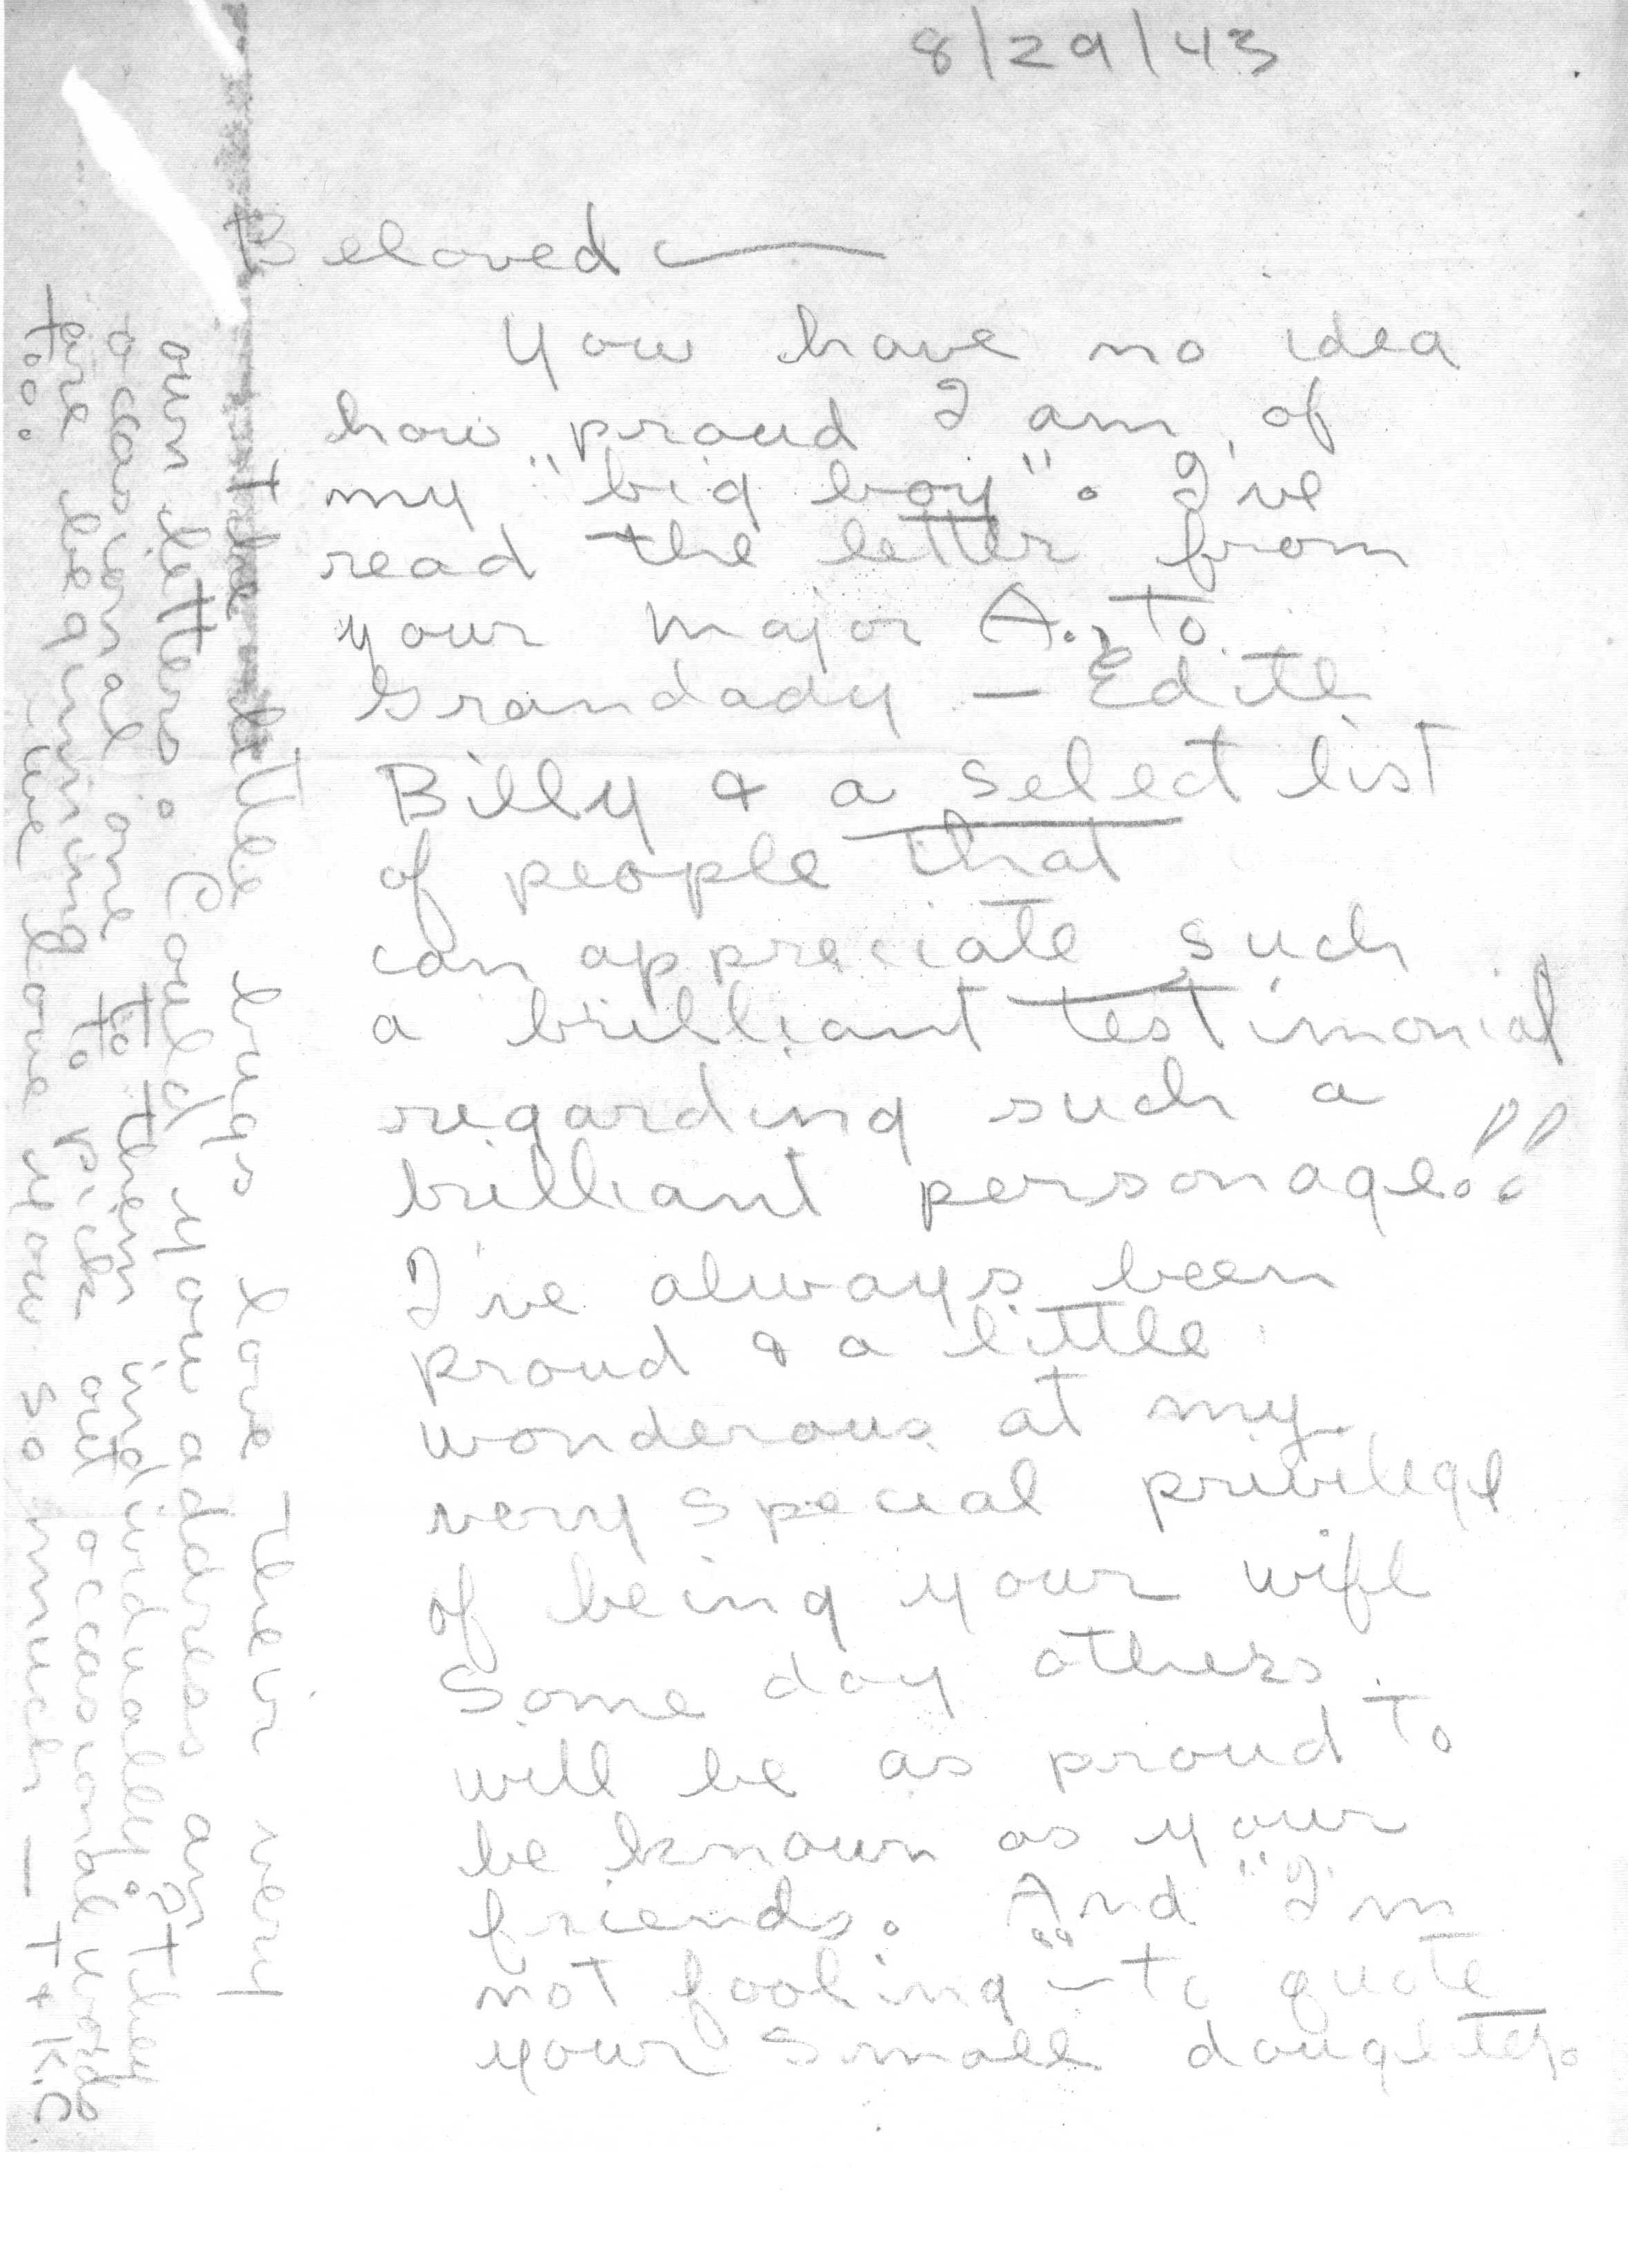 8/29/43
Beloved —
You have no idea
how proud I am, of
my "big boy". I've
read the letter from
your Major A., to
Grandady - Edith
Billy & a select list
of people that
can appreciate such
a brilliant testimonial
regarding such a
brilliant personage!!
I've always been
proud & a little
wonderous at my
very special privilege
of being your wife
Some day others
will be as proud to
be known as your
friends. And "I'm
not fooling" - to quote
your small daughter.
The little bugs love their very
own letters. Could you address an
occasional one to them individually. They
are beginning to pick out occasional words
too. - We love you so much - T + K.C.